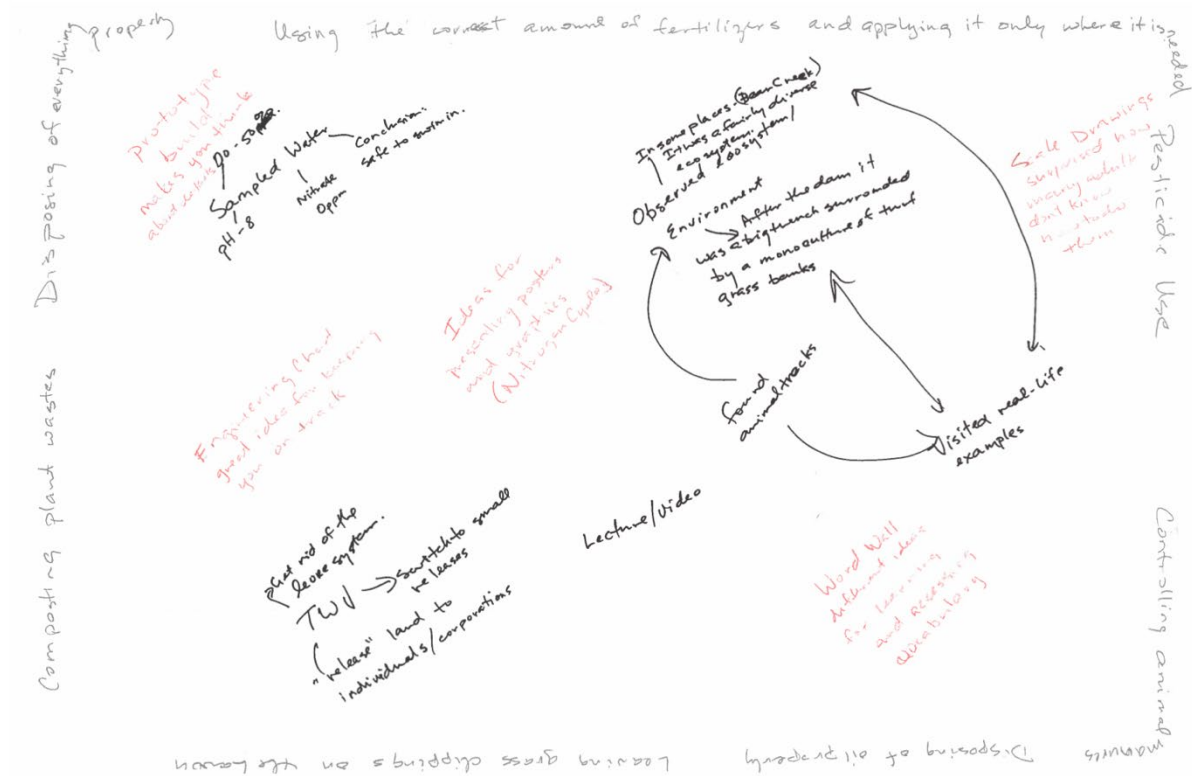 Using the correct amount of fertilizers and applying it only where it is needed
Pesticide Use
Controlling animal manures
Disposing of oil properly
Leaving grass clippings on the lawn
Composting plant wastes
Disposing of everything properly
Prototype
build
makes you think
about details
DO-50
Sampled Water
pH-8
Nitrate
0ppm
Conclusion:
safe to swim in.
In some places (Bear Creek)
It was a fairly diverse
ecosystem.
Observed Ecosystem/
Environment
After the dam it
was a big trench surrounded
by a monoculture of turf
grass banks
Scale Drawings
surprised how
many adults
don't know
how to do
them
Ideas for
presenting posters
and graphics
(Nitrogen Cycle)
Engineering Chart
good idea for keeping
you on track
found
animal tracks
Visited real-life
examples
Get rid of the
levee system.
TWV
Switch to small
releases
"release" land to
individuals/corporations
Lecture/video
Word Wall
different ideas
for learning
and accessing
vocabulary